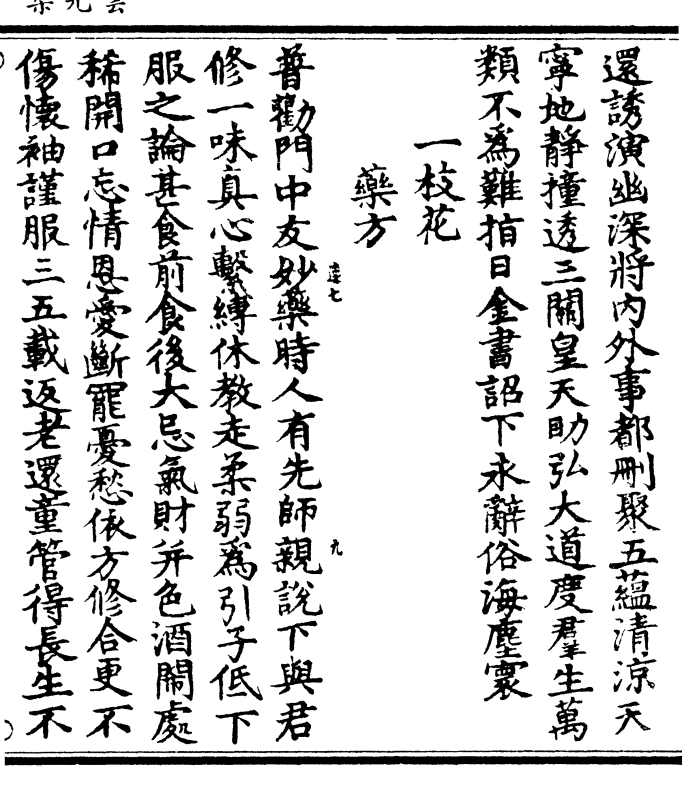 還誘演幽深將內外事都刪聚五蘊清涼天
寧地靜撞透三關皇天助弘大道度羣生萬
類不爲難指日金書詔下永辭俗海塵寰
一枝花
藥方
普勸門中友妙藥時人有先師親說下與君
修一味真心繫縛休教走柔弱爲引子低下
服之論甚食前食後大忌氣財并色酒鬧處
稀開口忘情恩愛斷罷憂愁依方修合更不
傷懷袖謹服三五載返老還童管得長生不